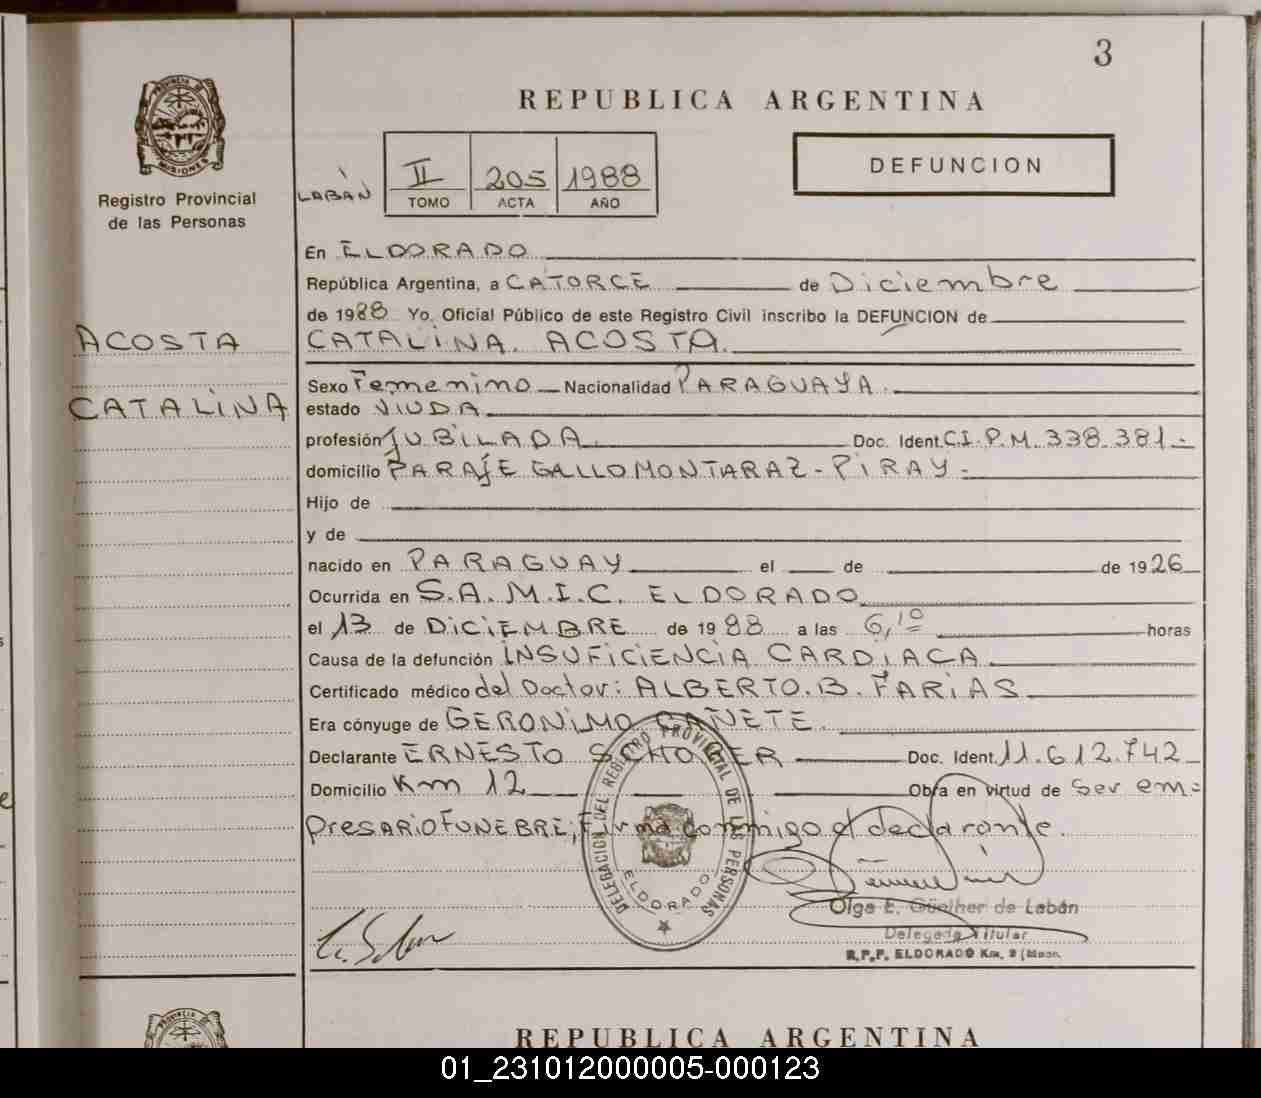 3
REPUBLICA ARGENTINA
PROVINCIA DE MISIONES
Registro Provincial
de las Personas
DEFUNCION
LABÁN
II 205 1988
TOMO ACTA AÑO
En ELDORADO
República Argentina, a CATORCE de Diciembre
de 1988 Yo, Oficial Público de este Registro Civil inscribo la DEFUNCION de
ACOSTA
CATALINA. ACOSTA.
Sexo Femenino Nacionalidad PARAGUAYA.
CATALINA
estado VIUDA
profesión JUBILADA. Doc. Ident. C.I.P.M. 338.381.-
domicilio PARAJE GALLO MONTARAZ - PIRAY -
Hijo de
y de
nacido en PARAGUAY el de de 1926
Ocurrida en S.A.M.I.C. ELDORADO
el 13 de DICIEMBRE de 1988 a las 6,10 horas
Causa de la defunción INSUFICIENCIA CARDIACA
Certificado médico del Doctor: ALBERTO. B. FARIAS
Era cónyuge de GERONIMO CAÑETE.
Declarante ERNESTO Doc. Ident. 11.612.742
Domicilio Km 12 Obra en virtud de Ser em=
PRESARIO FUNEBRE; Firma conmigo el declarante.
DELEGACION DEL REGISTRO PROVINCIAL DE LAS PERSONAS
ELDORADO
Olga E. Günther de Labán
Delegada Titular
R.P.P. ELDORADO Km. 9 (Mnes.
REPUBLICA ARGENTINA
01_231012000005-000123